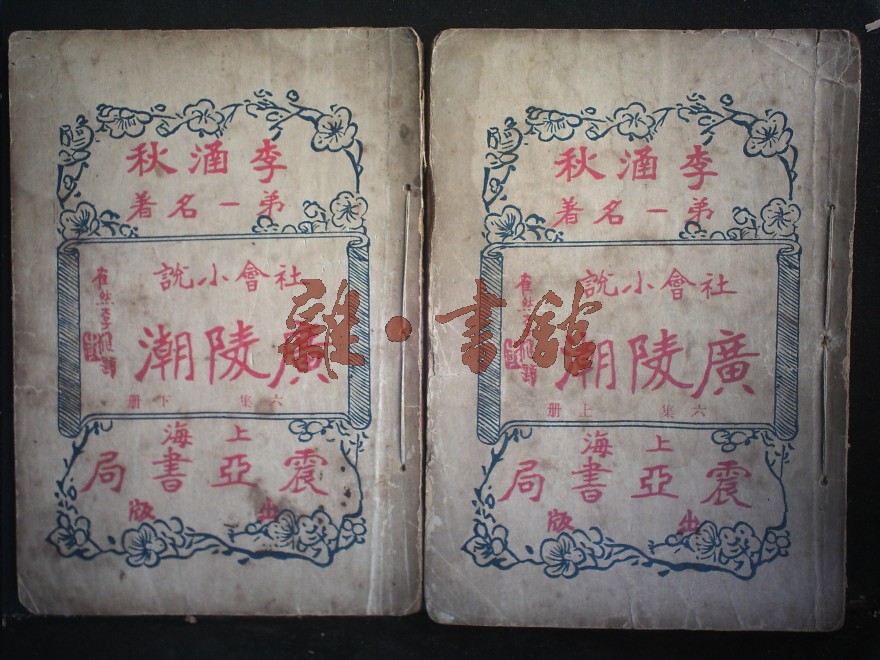 李涵秋
弟一名著
社會小說
廣陵潮
六集 下册
上海
震亞書局
出版
李涵秋
弟一名著
社會小說
廣陵潮
六集 上册
上海
震亞書局
出版
雜·書館